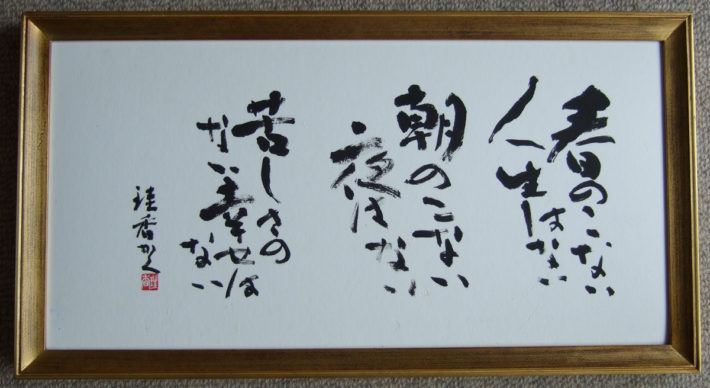 春のこない
人生はない
朝のこない
夜はない
苦しさの
ない幸せは
ない
珪香かく